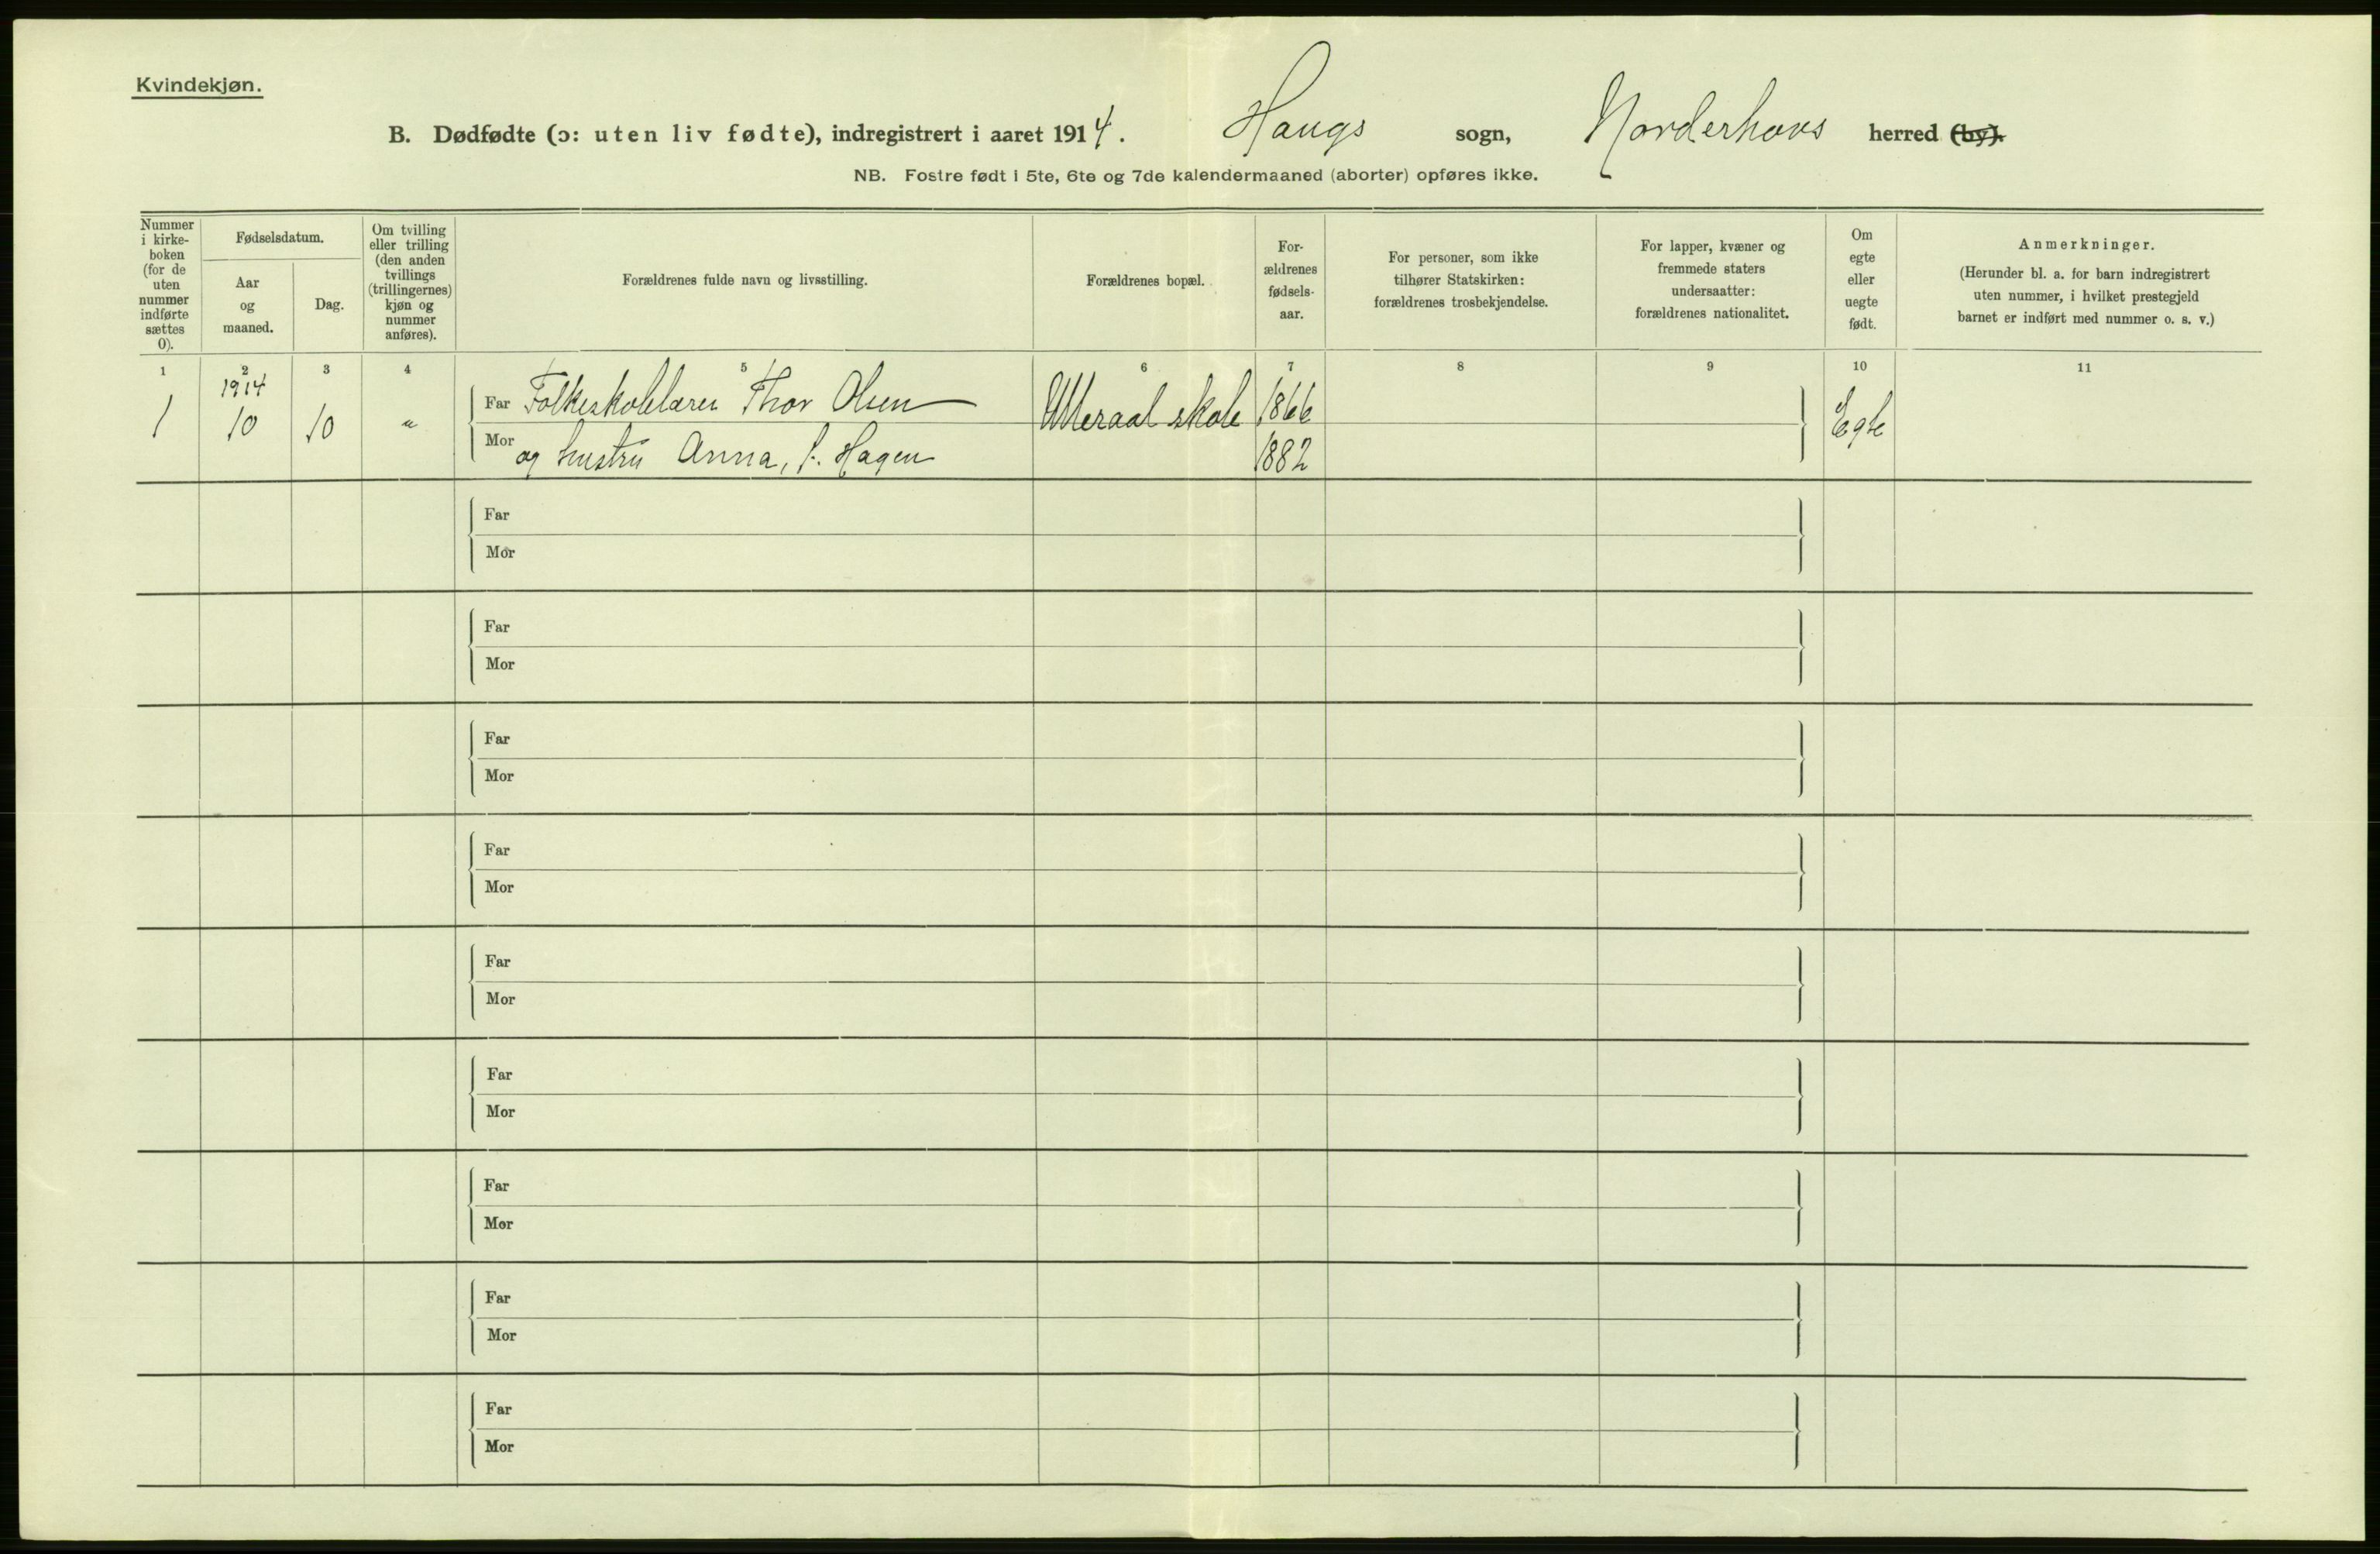 Kvindekjøn.
B. Dødfødte (ɔ: uten liv fødte), indregistrert i aaret 1914. Haugs sogn, Norderhovs herred (by).
NB. Fostre født i 5te, 6te og 7de kalendermaaned (aborter) opføres ikke.
Nummer
i kirke-
boken
(for de
uten
nummer
indførte
sættes
0).
Fødselsdatum.
Aar
og
maaned.
Dag.
Om tvilling
eller trilling
(den anden
tvillings
(trillingernes)
kjøn og
nummer
anføres).
Forældrenes fulde navn og livsstilling.
Forældrenes bopæl.
For-
ældrenes
fødsels-
aar.
For personer, som ikke
tilhører Statskirken:
forældrenes trosbekjendelse.
For lapper, kvæner og
fremmede staters
undersaatter:
forældrenes nationalitet.
Om
egte
eller
uegte
født.
Anmerkninger.
(Herunder bl. a. for barn indregistrert
uten nummer, i hvilket prestegjeld
barnet er indført med nummer o. s. v.)
1 2 3 4 5 6 7 8 9 10 11
1914
1 10 10 " Far Folkeskolelærer Thor Olsen Ulleraal skole 1866 Egte
Mor og hustru Anna, f. Hagen 1882
Far
Mor
Far
Mor
Far
Mor
Far
Mor
Far
Mor
Far
Mor
Far
Mor
Far
Mor
Far
Mor